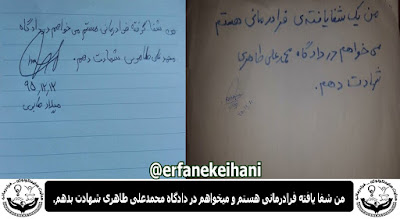 من شفا گرفته فرادرمانی هستم می‌خواهم در دادگاه
محمد علی طاهری شهادت دهم.
۹۵,۱۲,۱۲
من یک شفا یافته‌ی فرادرمانی هستم
می‌خواهم در دادگاه محمد علی طاهری
شهادت دهم.
@erfanekeihani
من شفا یافته فرادرمانی هستم و میخواهم در دادگاه محمدعلی طاهری شهادت بدهم.